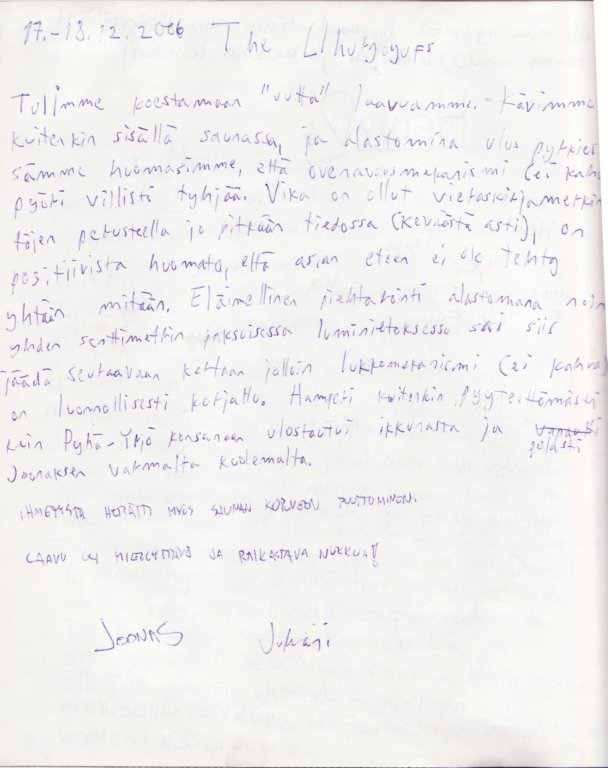 17.-18.12.2006 The
Tulimme koestamaan "uutta" laavuamme. Kävimme
kuitenkin sisällä saunassa, ja alastomina ulos pyrkies
sämme huomasimme, että ovenavausmekanismi (ei kahva)
pyöri villisti tyhjää. Vika on ollut vieraskirjamerkin
töjen perusteella jo pitkään tiedossa (keväästä asti), on
positiivista huomata, että asian eteen ei ole tehty
yhtään mitään. Eläimellinen piehtaröinti alastomana noin
yhden senttimetrin paksuisessa lumihietoksessa sai siis
jäädä seuraavaan kertaan jolloin lukkomekanismi (ei kahva)
on luonnollisesti korjattu. Hampeti kuitenkin pyyteettömästi
kuin Pyhä-Yrjö konsanaan ulostautui ikkunasta ja pelasti
Joonaksen varmalta kuolemalta.
IHMETYSTÄ HERÄTTI MYÖS SAUNAN KORVEON PUUTTUMINEN.
LAAVU OLI MIELLYTTÄVÄ JA RAIKASTAVA NUKKUA!
JOONAS Juhani